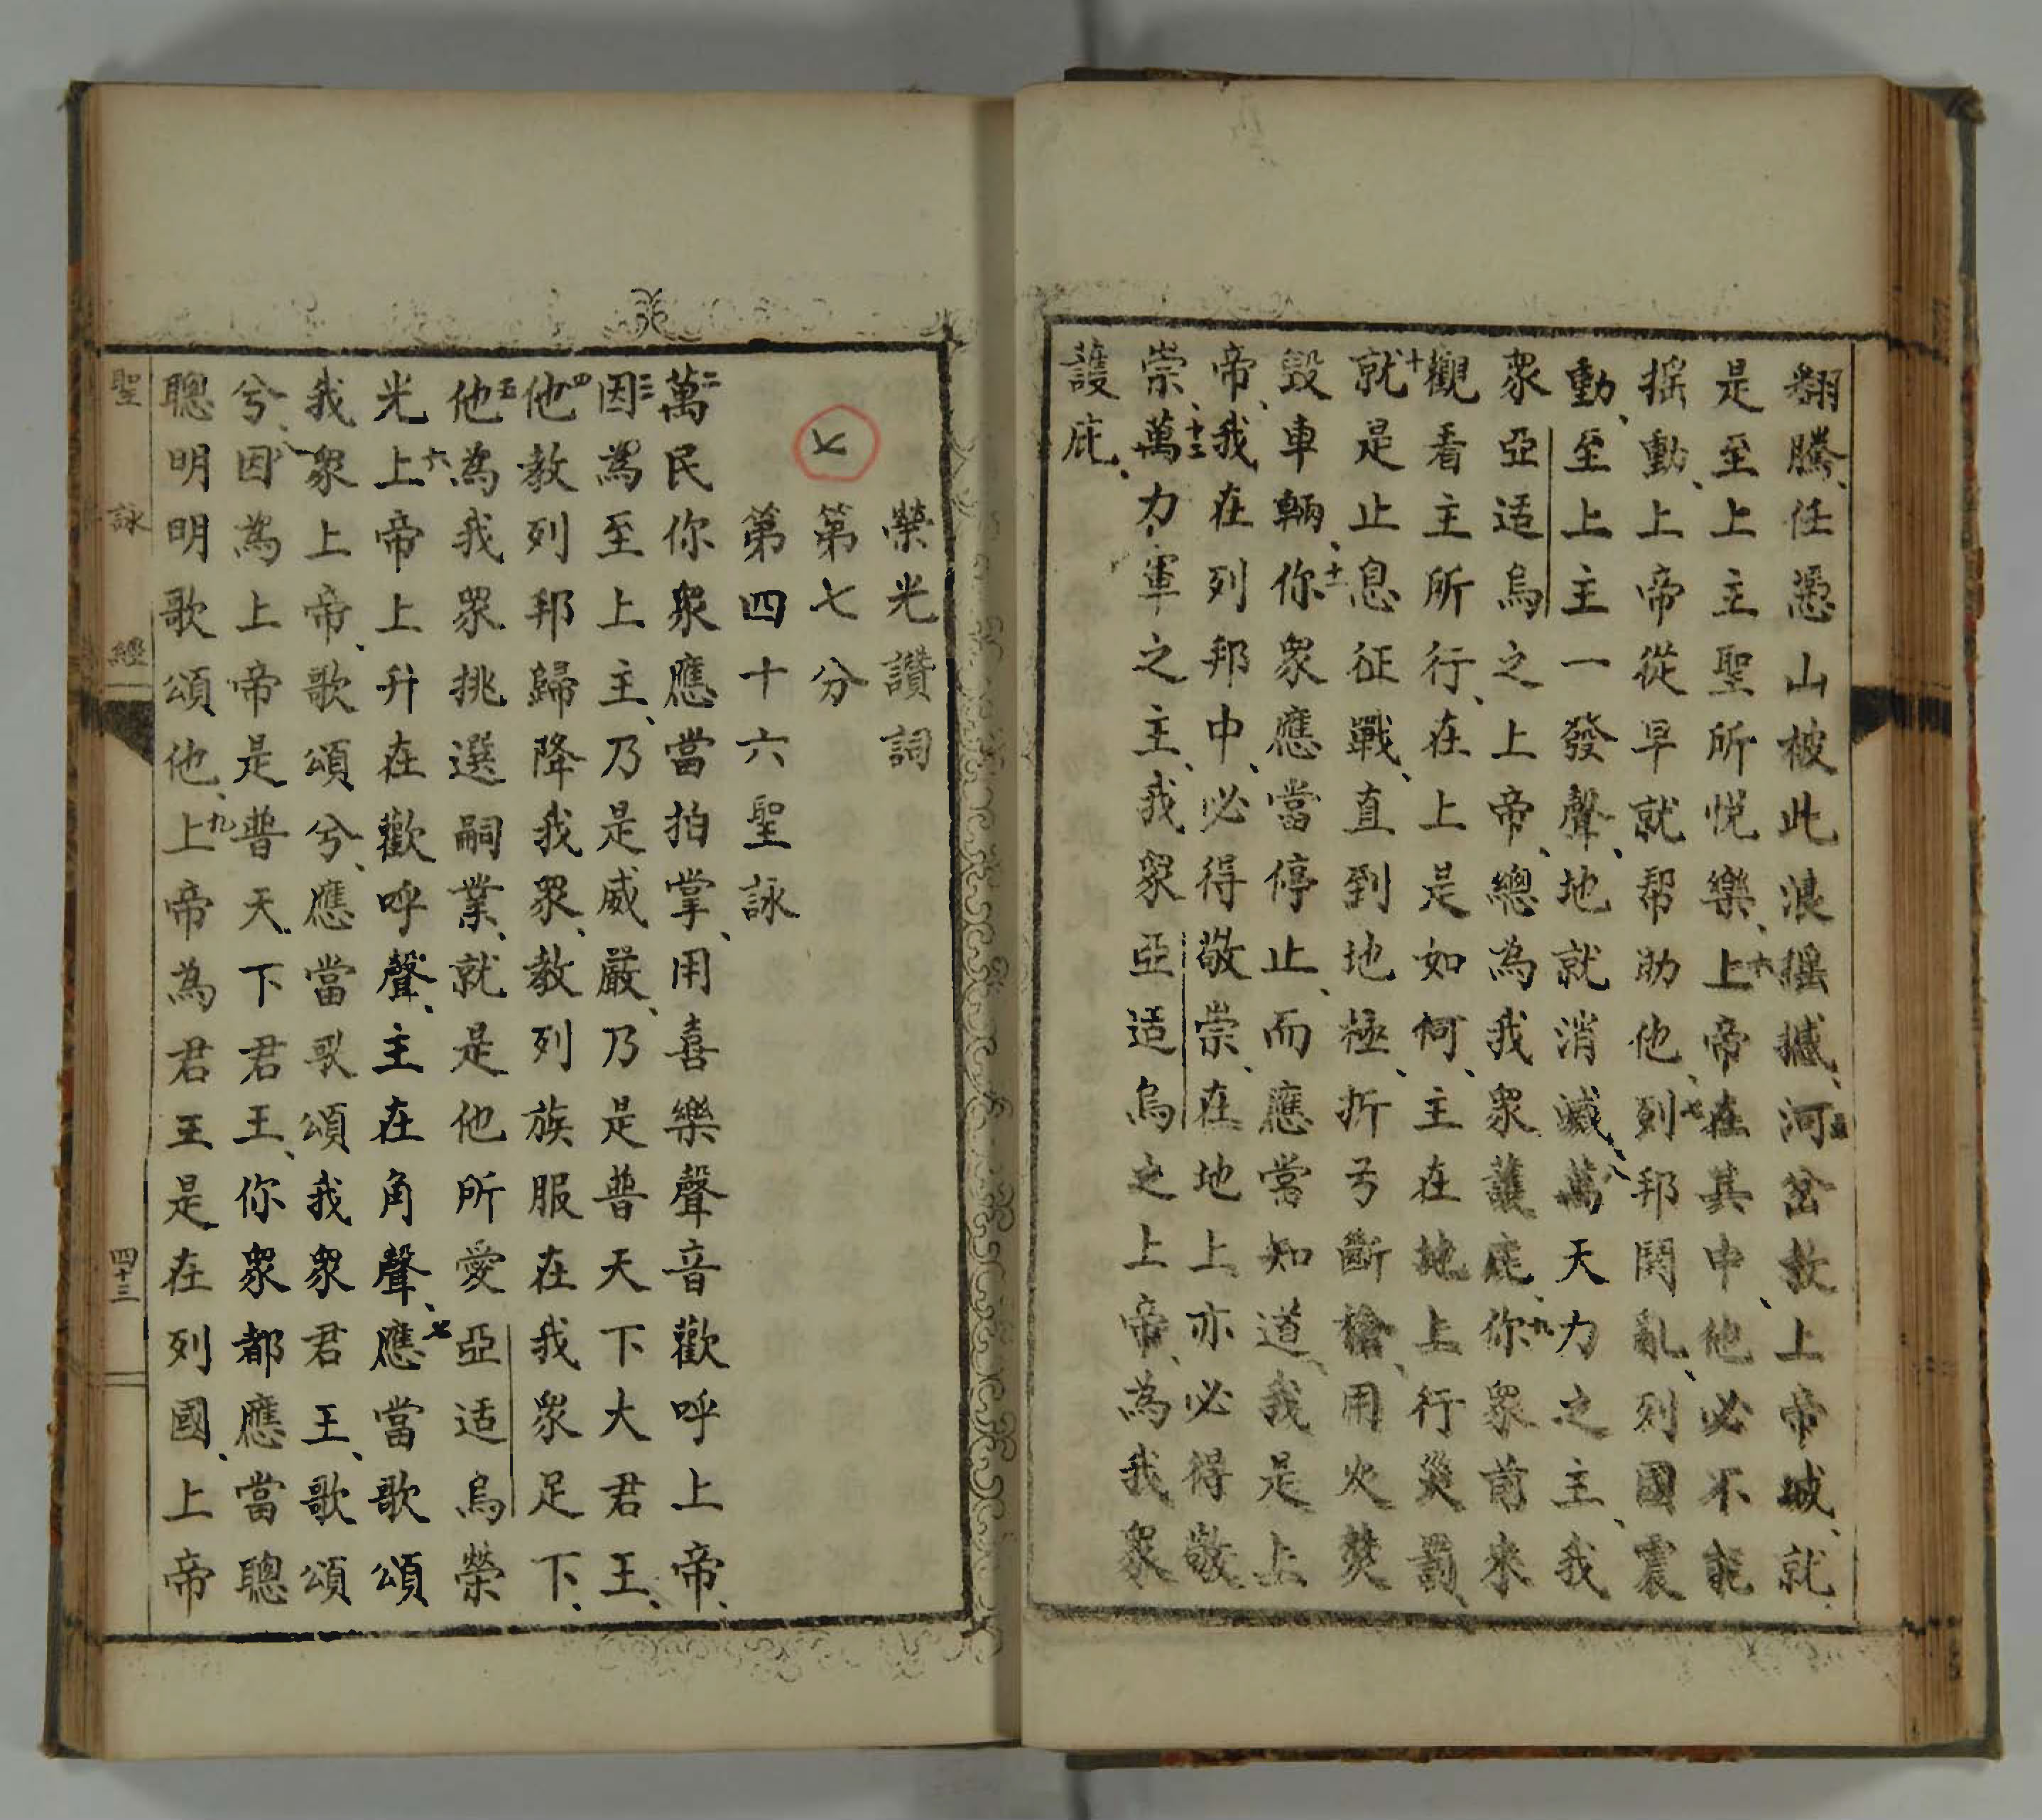 翻騰、任憑山被此浪搖撼、五河岔教上帝城、就
是至上主聖所悅樂、六上帝在其中、他必不能
搖動、上帝從早就幫助他、七列邦鬧亂、列國震
動、至上主一發聲、地就消滅、八萬天力之主、我
衆亞适烏之上帝、總為我衆護庇、九你衆前來
觀看主所行、在上是如何、主在地上行災罰、
十就是止息征戰、直到地極、折弓斷槍、用火焚
毀車輛、十一你衆應當停止、而應當知道、我是上
帝、我在列邦中、必得敬崇、在地上亦必得敬
崇、十二萬力軍之主、我衆亞适烏之上帝、為我衆
護庇、
榮光讚詞
七
第七分
第四十六聖詠
二萬民你衆應當拍掌、用喜樂聲音歡呼上帝、
三因為至上主、乃是威嚴、乃是普天下大君王、
四他教列邦歸降我衆、教列族服在我衆足下、
五他為我衆挑選嗣業、就是他所愛亞适烏榮
光、六上帝上升在歡呼聲、主在角聲、七應當歌頌
我衆上帝、歌頌兮、應當歌頌我衆君王、歌頌
兮、八因為上帝是普天下君王、你衆都應當聰
聰明明歌頌他、九上帝為君王是在列國、上帝
聖詠經
四十三